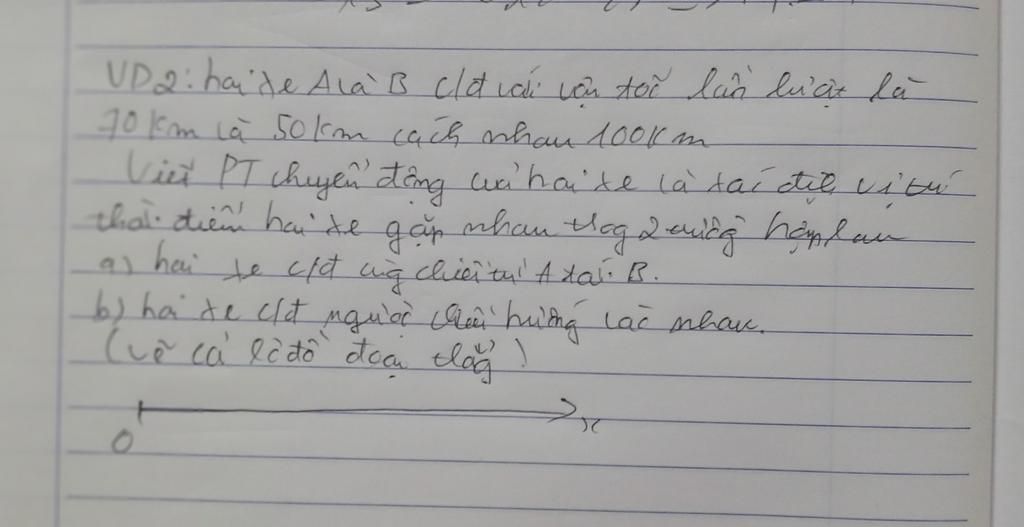 VD2: hai xe A và B c/đ với vận tốc lần lượt là
70km và 50km cách nhau 100km
Viết PT chuyển động của hai xe và xác định vị trí
thời điểm hai xe gặp nhau trog 2 trường hợp sau
a) hai xe c/đ cùg chiều từ A tới B.
b) hai xe c/đ ngược chiều hướng vào nhau.
(vẽ cả sơ đồ đoạn thẳg)
O x